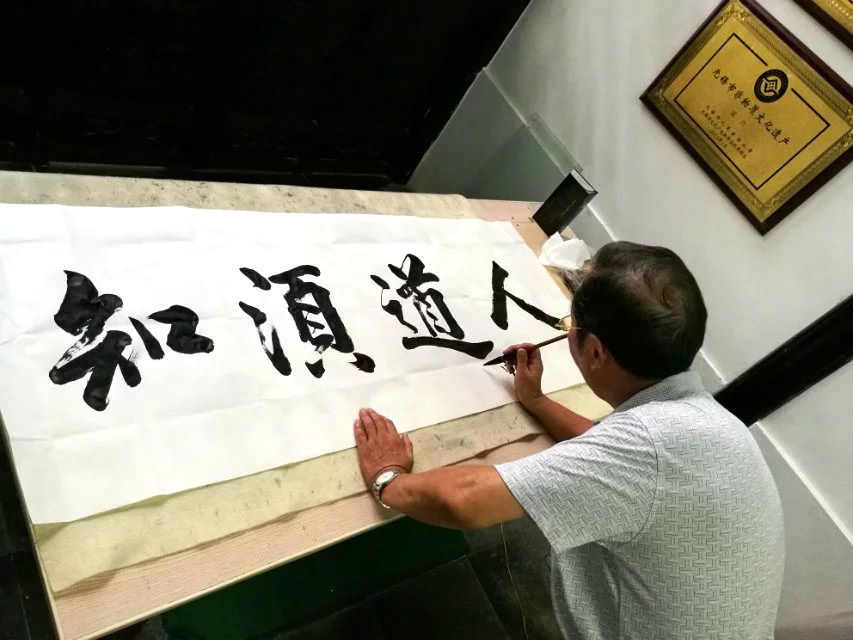 人道須知
无锡市非物质文化遗产